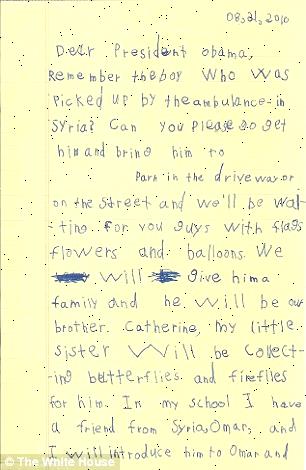 08,21,2010
Dear President obama,
Remember the boy who was
Picked up by the ambulance in
Syria? Can you please go get
him and bring him to
Park in the driveway or
on the street and we'll be wai-
ting for you guys with flags
flowers and balloons. We
will give him a
family and he will be our
brother. Catherine, my little
sister will be collect-
ing butterflies and fireflies
for him. In my school I have
a friend from Syria, Omar, and
I will introduce him to Omar and
© The White House